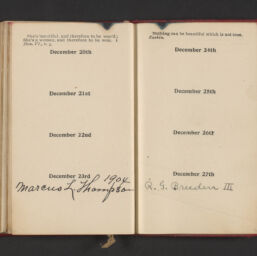 She's beautiful, and therefore to be woo'd;
She's a woman, and therefore to be won. 1
Hen. VI., v. 3.
December 20th
December 21st
December 22nd
December 23rd
1904
Marcus L. Thompson
Nothing can be beautiful which is not true.
Ruskin.
December 24th
December 25th
December 26th
December 27th
R. G. Breeden III